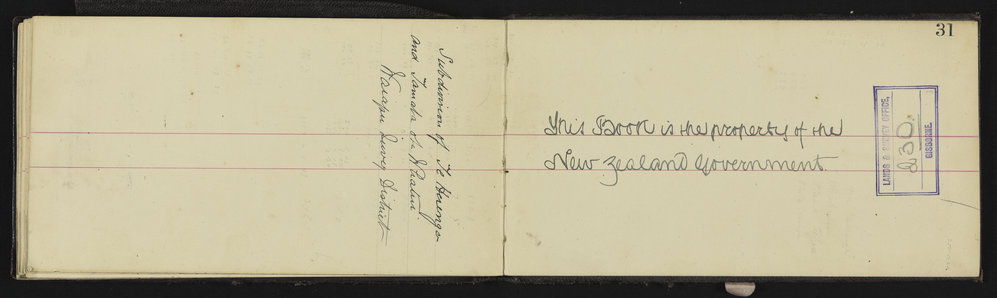 Subdivision of Te Herenga
and Tamata o te Whatui
Waiapu Survey District
31
This Book is the property of the
New Zealand Government.
LANDS & SURVEY OFFICE,
230.
GISBORNE.